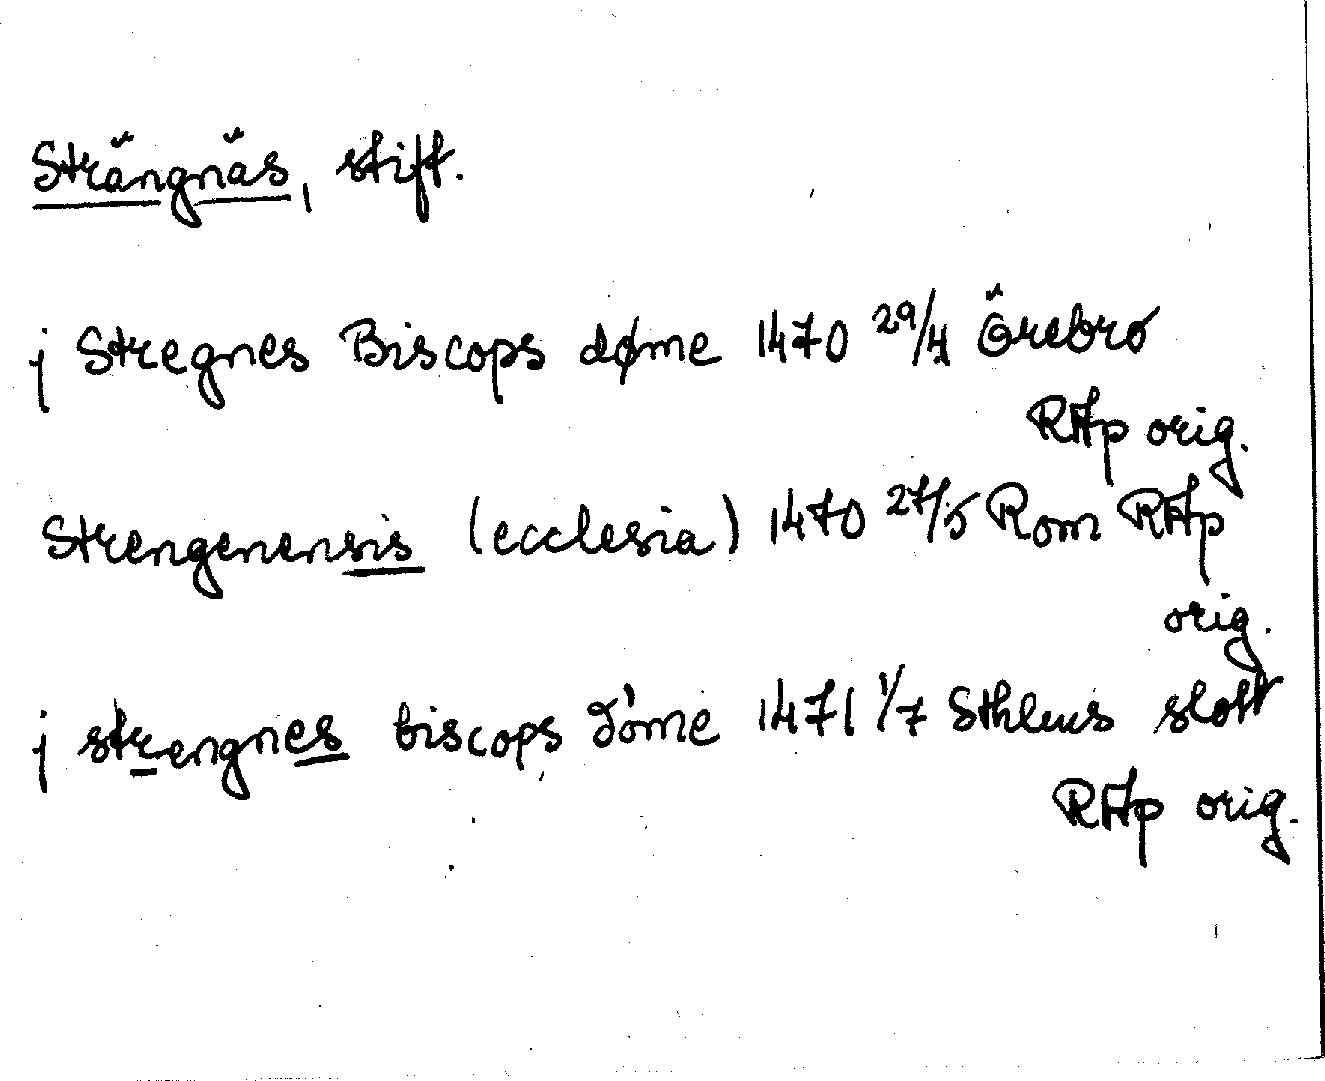 Strängnäs, stift.
j Stregnes Biscops døme 1470 29/4 Örebro
RAp orig.
Strengenensis (ecclesia) 1470 27/5 Rom RAp
orig.
j strengnes biscops dóme 1471 1/7 Sthlms slott
RAp orig.